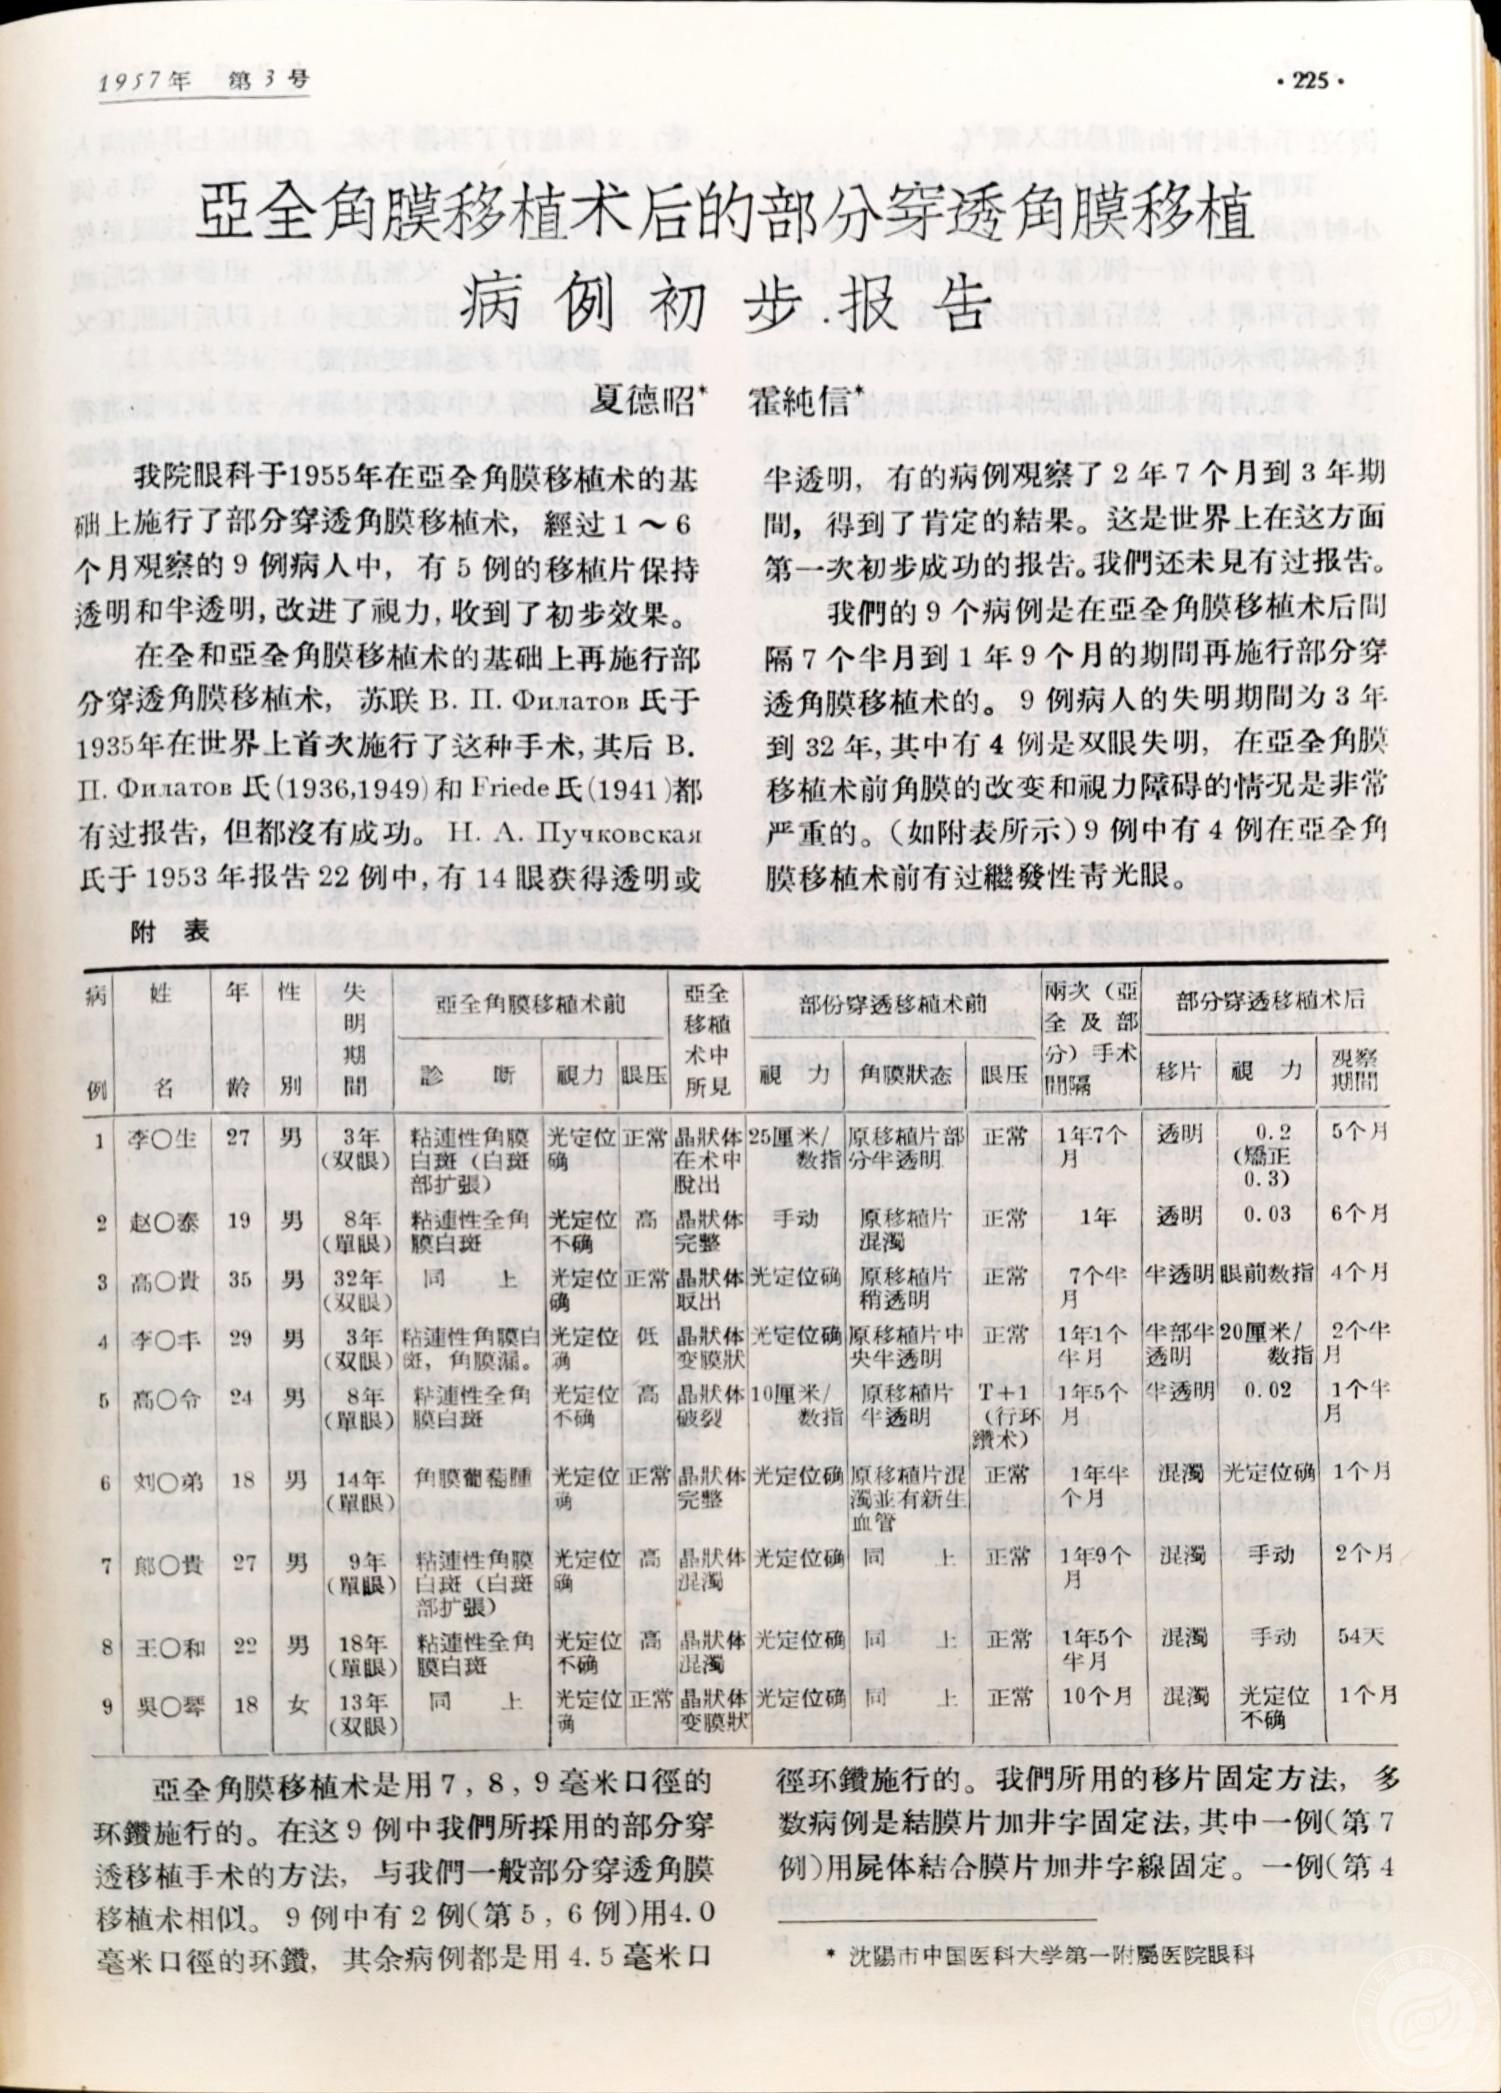 1957年 第3号
·225·
亞全角膜移植术后的部分穿透角膜移植
病例初步报告
夏德昭* 霍純信*
我院眼科于1955年在亞全角膜移植术的基
础上施行了部分穿透角膜移植术，經过1～6
个月观察的9例病人中，有5例的移植片保持
透明和半透明，改进了視力，收到了初步效果。
在全和亞全角膜移植术的基础上再施行部
分穿透角膜移植术，苏联 В. П. Филатов 氏于
1935年在世界上首次施行了这种手术，其后 В.
П. Филатов 氏(1936,1949)和 Friede 氏(1941)都
有过报告，但都沒有成功。Н. А. Пучковская
氏于1953年报告22例中，有14眼获得透明或
半透明，有的病例观察了2年7个月到3年期
間，得到了肯定的結果。这是世界上在这方面
第一次初步成功的报告。我們还未見有过报告。
我們的9个病例是在亞全角膜移植术后間
隔7个半月到1年9个月的期間再施行部分穿
透角膜移植术的。9例病人的失明期間为3年
到32年，其中有4例是双眼失明，在亞全角膜
移植术前角膜的改变和視力障碍的情况是非常
严重的。（如附表所示）9例中有4例在亞全角
膜移植术前有过繼發性青光眼。
附表
病例 姓名 年齡 性別 失明期間 亞全角膜移植术前 亞全移植术中所見 部份穿透移植术前 兩次（亞全及部分）手术間隔 部分穿透移植术后
診断 視力 眼压 視力 角膜狀态 眼压 移片 視力 观察期間
1 李○生 27 男 3年(双眼) 粘連性角膜白斑（白斑部扩張） 光定位确 正常 晶狀体在术中脫出 25厘米/数指 原移植片部分半透明 正常 1年7个月 透明 0.2(矯正0.3) 5个月
2 赵○泰 19 男 8年(單眼) 粘連性全角膜白斑 光定位不确 高 晶狀体完整 手动 原移植片混濁 正常 1年 透明 0.03 6个月
3 高○貴 35 男 32年(双眼) 同上 光定位确 正常 晶狀体取出 光定位确 原移植片稍透明 正常 7个半月 半透明 眼前数指 4个月
4 李○丰 29 男 3年(双眼) 粘連性角膜白斑，角膜漏。 光定位确 低 晶狀体变膜狀 光定位确 原移植片中央半透明 正常 1年1个半月 半部半透明 20厘米/数指 2个半月
5 高○令 24 男 8年(單眼) 粘連性全角膜白斑 光定位不确 高 晶狀体破裂 10厘米/数指 原移植片半透明 T+1（行环鑽术） 1年5个月 半透明 0.02 1个半月
6 刘○弟 18 男 14年(單眼) 角膜葡萄腫 光定位确 正常 晶狀体完整 光定位确 原移植片混濁並有新生血管 正常 1年半个月 混濁 光定位确 1个月
7 鄖○貴 27 男 9年(單眼) 粘連性角膜白斑（白斑部扩張） 光定位确 高 晶狀体混濁 光定位确 同上 正常 1年9个月 混濁 手动 2个月
8 王○和 22 男 18年(單眼) 粘連性全角膜白斑 光定位不确 高 晶狀体混濁 光定位确 同上 正常 1年5个半月 混濁 手动 54天
9 吳○琴 18 女 13年(双眼) 同上 光定位确 正常 晶狀体变膜狀 光定位确 同上 正常 10个月 混濁 光定位不确 1个月
亞全角膜移植术是用7，8，9毫米口徑的
环鑽施行的。在这9例中我們所採用的部分穿
透移植手术的方法，与我們一般部分穿透角膜
移植术相似。9例中有2例(第5，6例)用4.0
毫米口徑的环鑽，其余病例都是用4.5毫米口
徑环鑽施行的。我們所用的移片固定方法，多
数病例是結膜片加井字固定法，其中一例(第7
例)用屍体結合膜片加井字線固定。一例(第4
* 沈陽市中国医科大学第一附屬医院眼科